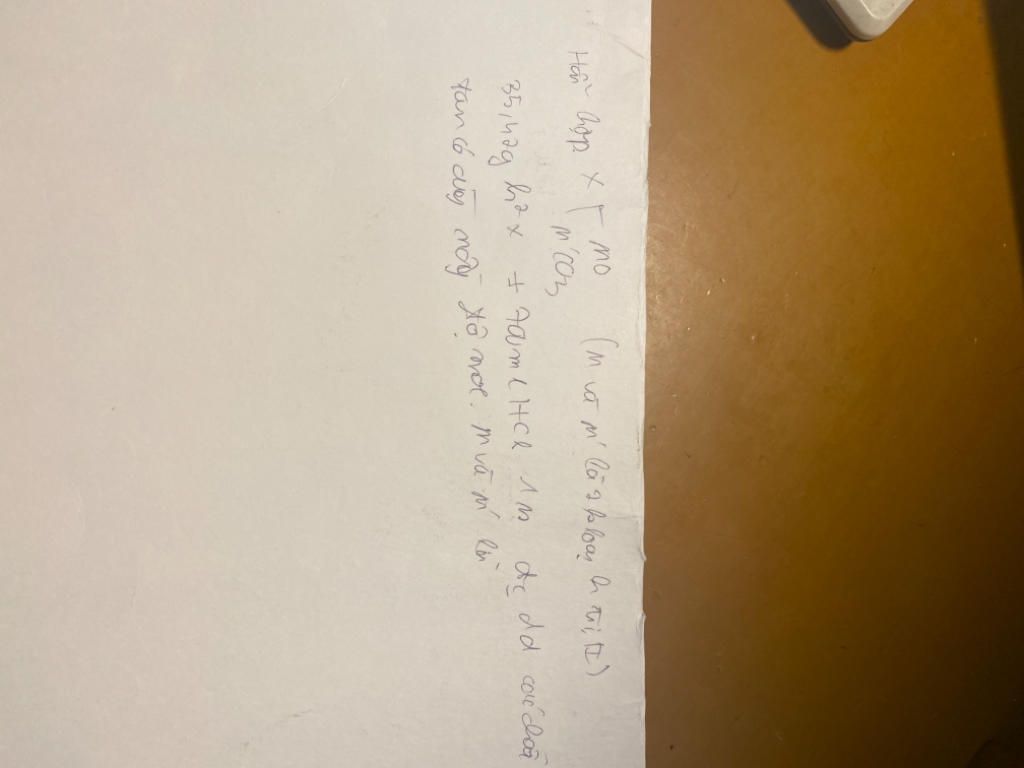 Hỗn hợp X { MO
M'CO3 (M và M' là 2 k loại h trị II)
35,42g h2 X + 7a ml HCl 1M đc dd có chất
tan có cùng nồng độ mol. M và M' là